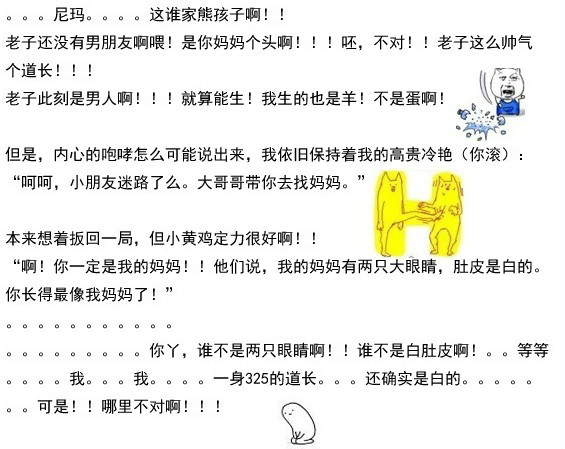 。。。尼玛。。。。这谁家熊孩子啊！！
老子还没有男朋友啊喂！是你妈妈个头啊！！！呸，不对！！老子这么帅气
个道长！！！
老子此刻是男人啊！！！就算能生！我生的也是羊！不是蛋啊！
但是，内心的咆哮怎么可能说出来，我依旧保持着我的高贵冷艳（你滚）：
“呵呵，小朋友迷路了么。大哥哥带你去找妈妈。”
本来想着扳回一局，但小黄鸡定力很好啊！！
“啊！你一定是我的妈妈！！他们说，我的妈妈有两只大眼睛，肚皮是白的。
你长得最像我妈妈了！”
。。。。。。。。。。。
。。。。。。。。。你丫，谁不是两只眼睛啊！！谁不是白肚皮啊！。。等等
。。。。我。。。我。。。。一身325的道长。。。还确实是白的。。。。。
。。可是！！哪里不对啊！！！